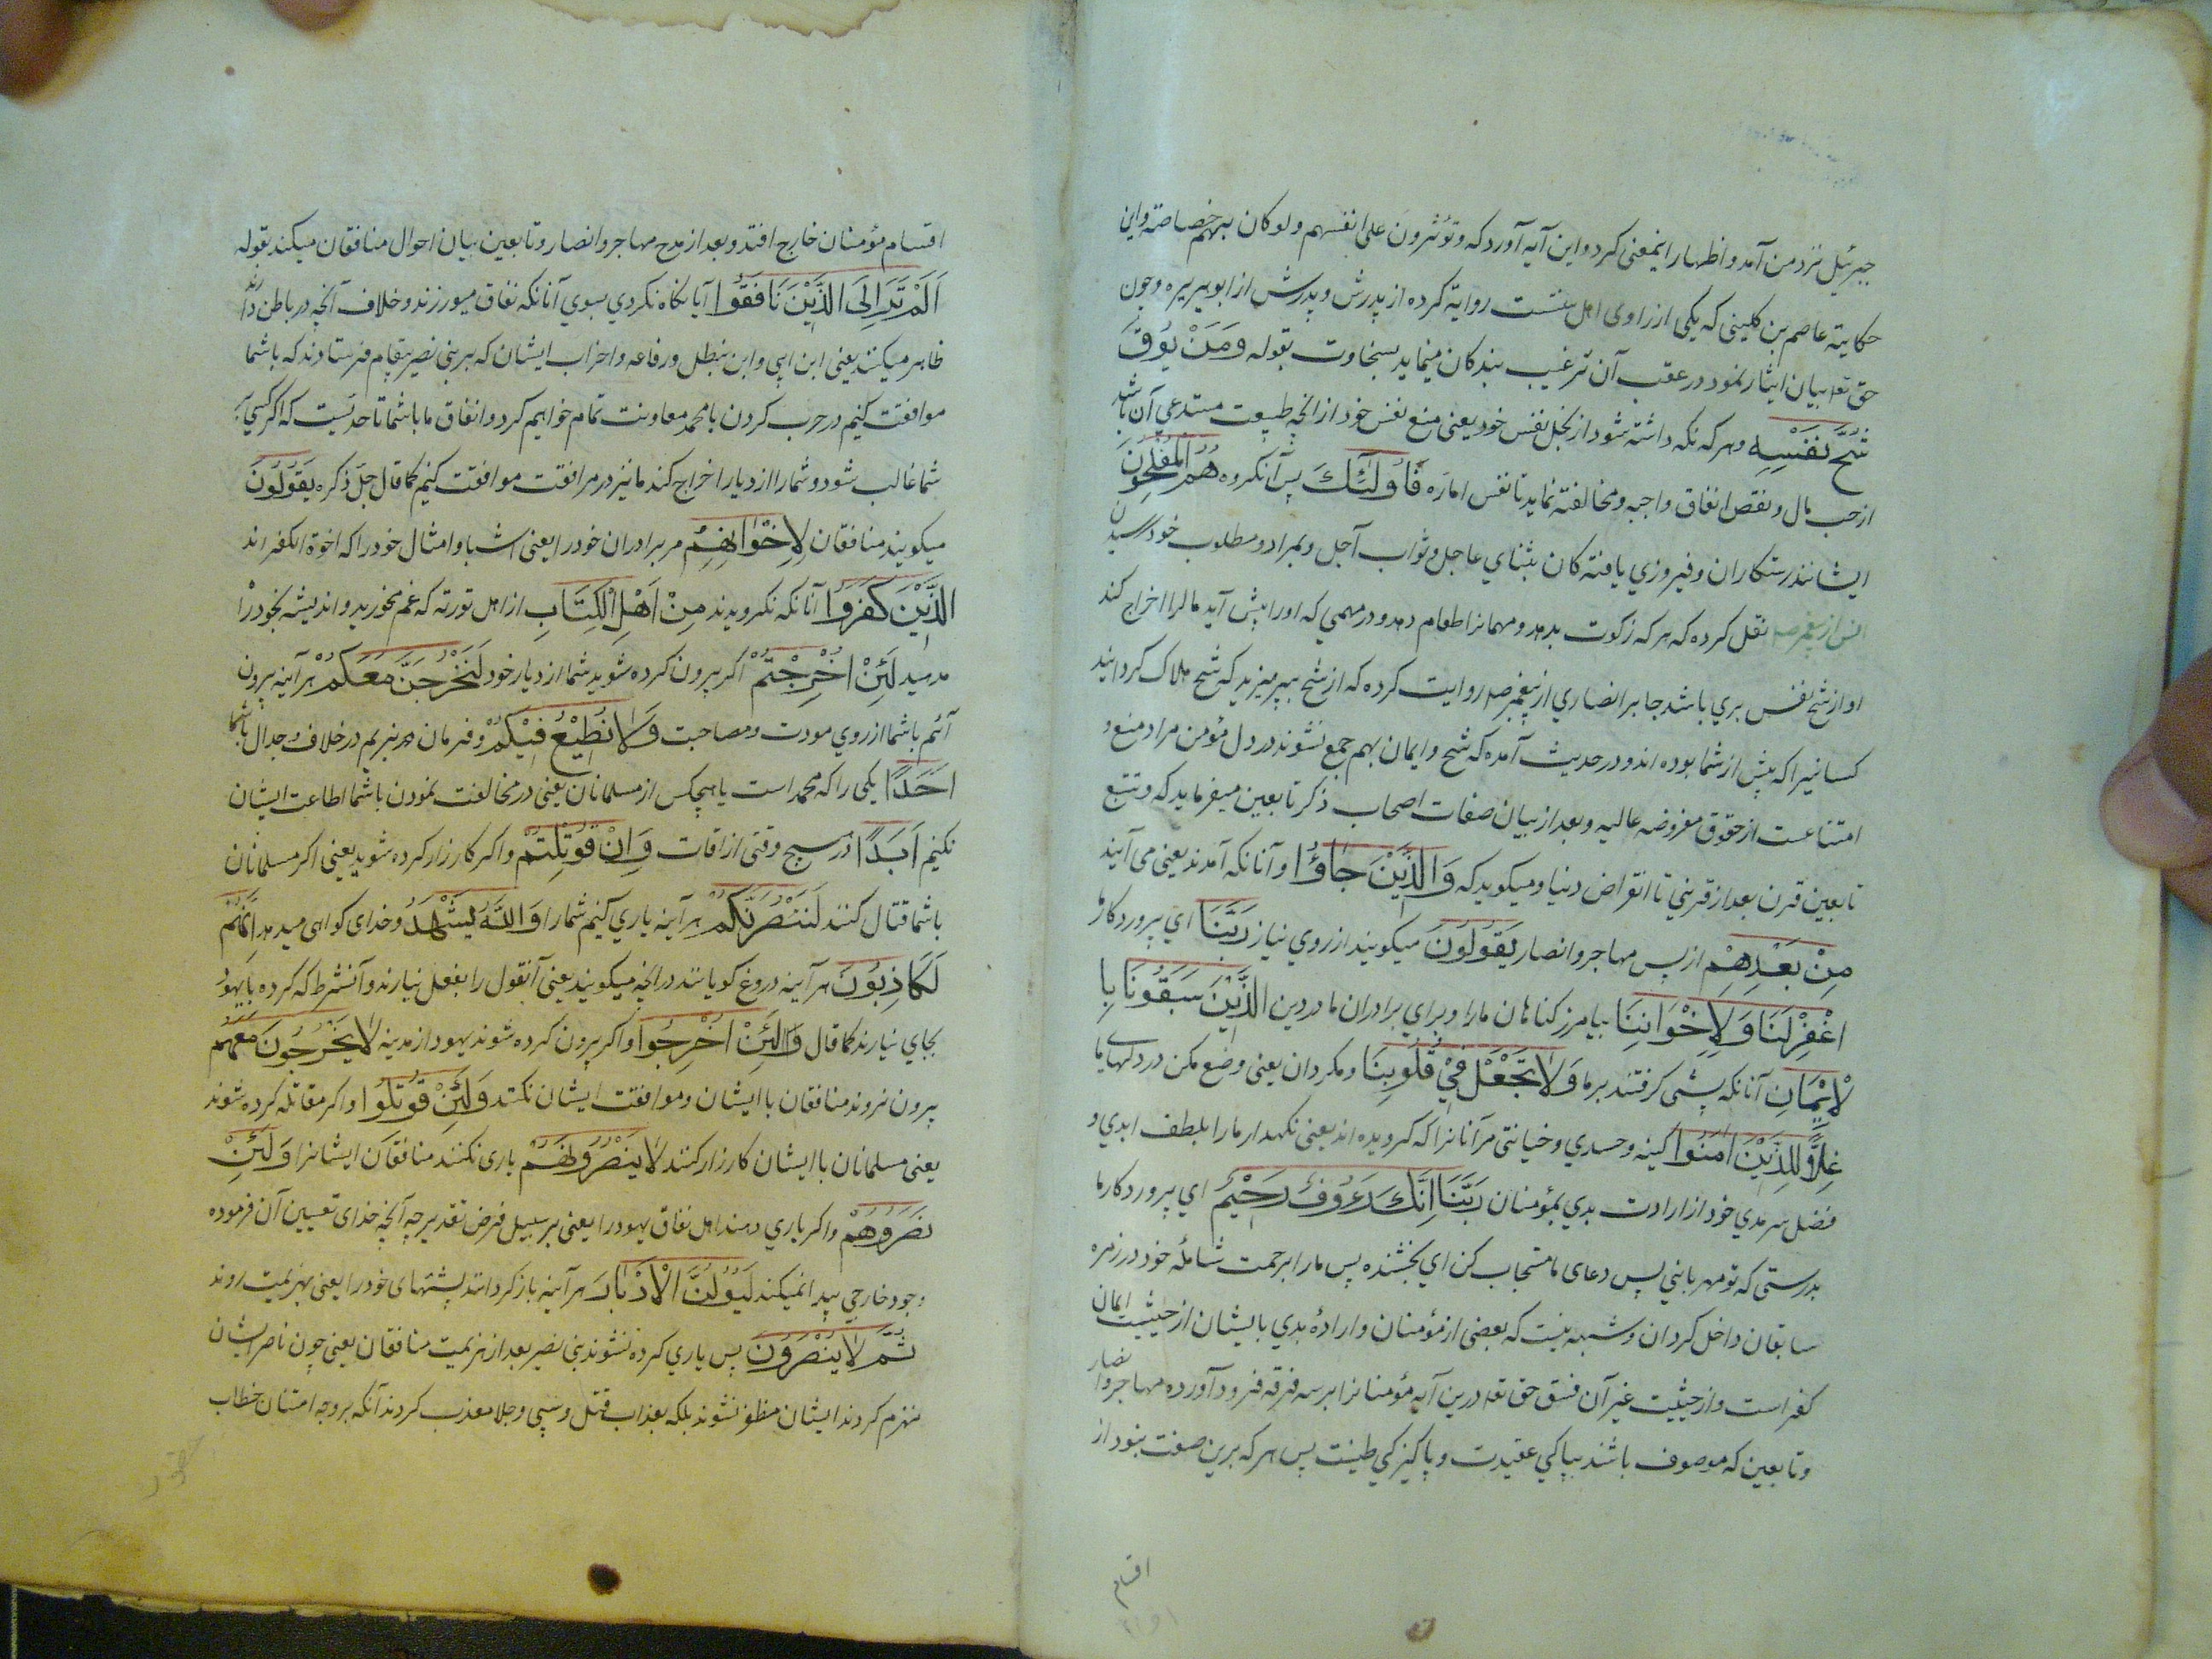 جبرئیل نزد من آمد و اظهار اینمعنی کرد و این آیه آورد که و تؤثرون علی انفسهم و لو کان بهم خصاصة و این
حکایة عاصم بن کلیبی که یکی از راوی اهل سنست روایة کرده از پدرش و پدرش از ابو هریره و چون
حق تعا بیان ایثار نمود در عقب آن ترغیب بندکان مینماید بسخاوت بقوله وَمَنْ یُوقَ
شُحَّ نَفْسِهِ و هر که نکه داشته شود از بخل نفس خود یعنی منع نفس خود از آنچه طبیعت مستدعی آن باشد
از حب مال و نقص انفاق واجبه و مخالفة نماید تا نفس اماره فَاُولٰئِكَ پس آنکروه هُمُ الْمُفْلِحُونَ
ایشانند رستکاران و فیروزی یافته کان بثنای عاجل و ثواب آجل و بمراد و مطلوب خود رسیدن
انس از پیغمبر ص نقل کرده که هر که زکوت بدهد و مهمانرا طعام دهد و در مهمی که او را پیش آید مالرا اخراج کند
او از شح نفس بری باشد جابر انصاری از پیغمبر ص روایت کرده که از شح بپرهیزید که شح هلاک کردانید
کسانیرا که پیش از شما بوده اند و در حدیث آمده که شح و ایمان بهم جمع نشوند در دل مؤمن مراد منع و
امتناعست از حقوق مفروضه عالیه و بعد از بیان صفات اصحاب ذکر تابعین میفرماید که و تتبع
تابعین قرن بعد از قرنی تا انقراض دنیا و میکوید که وَالَّذِیْنَ جَاؤُا و آنانکه آمدند یعنی می آیند
مِنْ بَعْدِهِمْ از پس مهاجر و انصار یَقُولُونَ میکویند از روی نیاز رَبَّنَا ای پروردکار ما
اغْفِرْ لَنَا وَلِاِخْوَانِنَا بیامرز کناهان ما را و برای برادران ما در دین الَّذِیْنَ سَبَقُونَا بِا
لْاِیْمَانِ آنانکه پیشی کرفتند بر ما وَلَا تَجْعَلْ فِیْ قُلُوبِنَا و مکردان یعنی وضع مکن در دلهای ما
غِلًّا لِلَّذِیْنَ اٰمَنُوا کینه و حسدی و خیانتی مر آنانرا که کرویده اند یعنی نکهدار ما را بلطف ابدی و
فضل سرمدی خود از ارادت بدی بمؤمنان رَبَّنَا اِنَّكَ رَءُوفٌ رَحِیْمٌ ای پروردکار ما
بدرستی که تو مهربانی پس دعای ما مستجاب کن ای بخشنده پس ما را برحمت شاملهٔ خود در زمره
سابقان داخل کردان و شبهه نیست که بعضی از مؤمنان و ارادهٔ بدی بایشان از حیثیت ایمان
کفر است و از حیثیت غیر آن فسق حق تعا درین آیه مؤمنانرا بر سه فرقه فرود آورده مهاجر و انصار
و تابعین که موصوف باشند بپاکی عقیدت و پاکیزکی طینت پس هر که برین صفت نبود از
اقسام
اقسام مؤمنان خارج افتد و بعد از مدح مهاجر و انصار و تابعین بیان احوال منافقان میکند بقوله
اَلَمْ تَرَ اِلَی الَّذِیْنَ نَافَقُوا آیا نکاه نکردی بسوی آنانکه نفاق میورزند و خلاف آنچه در باطن دارند
ظاهر میکنند یعنی ابن ابی و ابن نبطل و رفاعه و احزاب ایشان که بر بنی نضیر پیغام فرستادند که با شما
موافقت کنیم در حرب کردن با محمد معاونت تمام خواهیم کرد و اتفاق ما با شما تا حدیست که اکر کسی بر
شما غالب شود و شما را از دیار اخراج کند ما نیز در مرافقت موافقت کنیم کما قال جل ذکره یَقُولُونَ
میکویند منافقان لِاِخْوَانِهِمُ مر برادران خود را یعنی اشباه و امثال خود را که اخوة الکفر اند
الَّذِیْنَ کَفَرُوا آنانکه نکرویدند مِنْ اَهْلِ الْکِتَابِ از اهل توریة که غم مخورید و اندیشه بخود را
مدهید لَئِنْ اُخْرِجْتُمْ اکر بیرون کرده شوید شما از دیار خود لَنَخْرُجَنَّ مَعَکُمْ هر آینه بیرون
آئیم با شما از روی مودت و مصاحبت وَلَا نُطِیْعُ فِیْکُمْ و فرمان نبریم در خلاف و جدال با شما
اَحَدًا یکی را که محمد است یا هیچکس از مسلمانان یعنی در مخالفت نمودن با شما اطاعت ایشان
نکنیم اَبَدًا در هیچ وقتی از اوقات وَاِنْ قُوتِلْتُمْ و اکر کارزار کرده شوید یعنی اکر مسلمانان
با شما قتال کنند لَنَنْصُرَنَّکُمْ هر آینه یاری کنیم شما را وَاللّٰهُ یَشْهَدُ و خدای کواهی میدهد اِنَّهُمْ
لَکَاذِبُونَ هر آینه دروغ کویانند در آنچه میکویند یعنی آنقول را بفعل نیارند و آنشرط که کرده با یهود
بجای نیارند کما قال وَلَئِنْ اُخْرِجُوا و اکر بیرون کرده شوند یهود از مدینه لَا یَخْرُجُونَ مَعَهُمْ
بیرون نروند منافقان با ایشان و موافقت ایشان نکنند وَلَئِنْ قُوتِلُوا و اکر مقاتله کرده شوند
یعنی مسلمانان با ایشان کارزار کنند لَا یَنْصُرُونَهُمْ یاری نکنند منافقان ایشانرا وَلَئِنْ
نَصَرُوهُمْ و اکر یاری دهند اهل نفاق یهود را یعنی بر سبیل فرض تقدیر چه آنچه خدای تعیین آن فرموده
وجود خارجی پیدا نمیکند لَیُوَلُّنَّ الْاَدْبَارَ هر آینه باز کردانند پشتهای خود را یعنی بهزیمت روند
ثُمَّ لَا یُنْصَرُونَ پس یاری کرده نشوند بنی نضیر بعد از هزیمت منافقان یعنی چون ناصر ایشان
منهزم کردند ایشان مظفر نشوند بلکه بعذاب قتل و سبی و جلا معذب کردند آنکه بر وجه امتنان خطاب